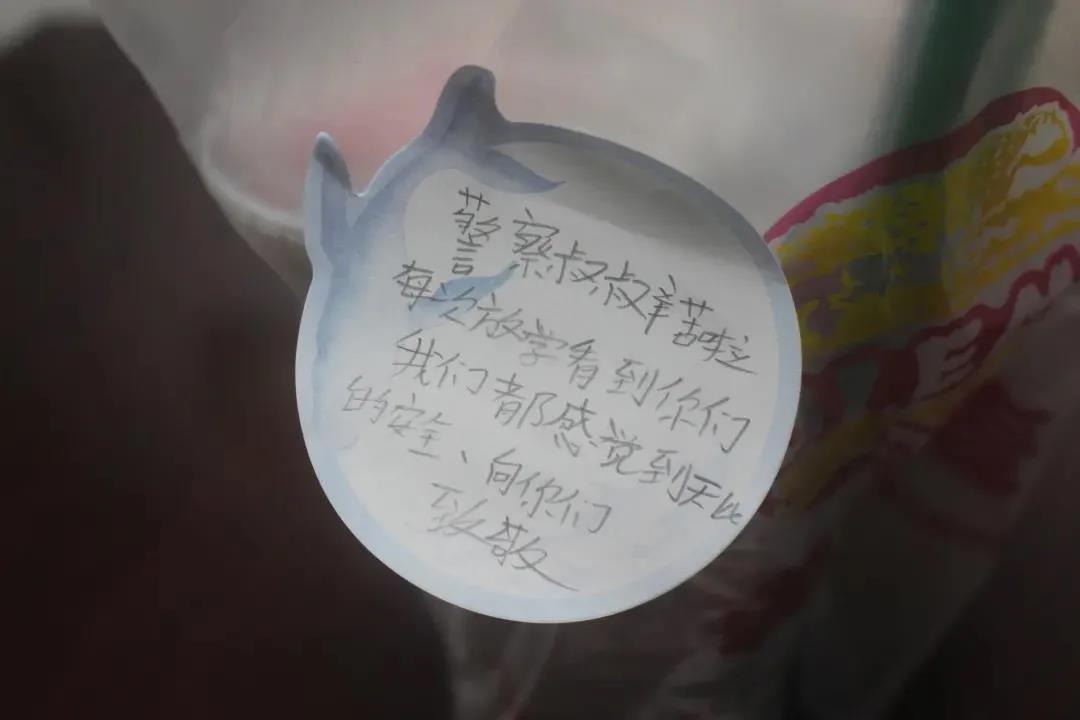 警察叔叔辛苦啦
每次放学看到你们
我们都感觉到无比
的安全、向你们
致敬